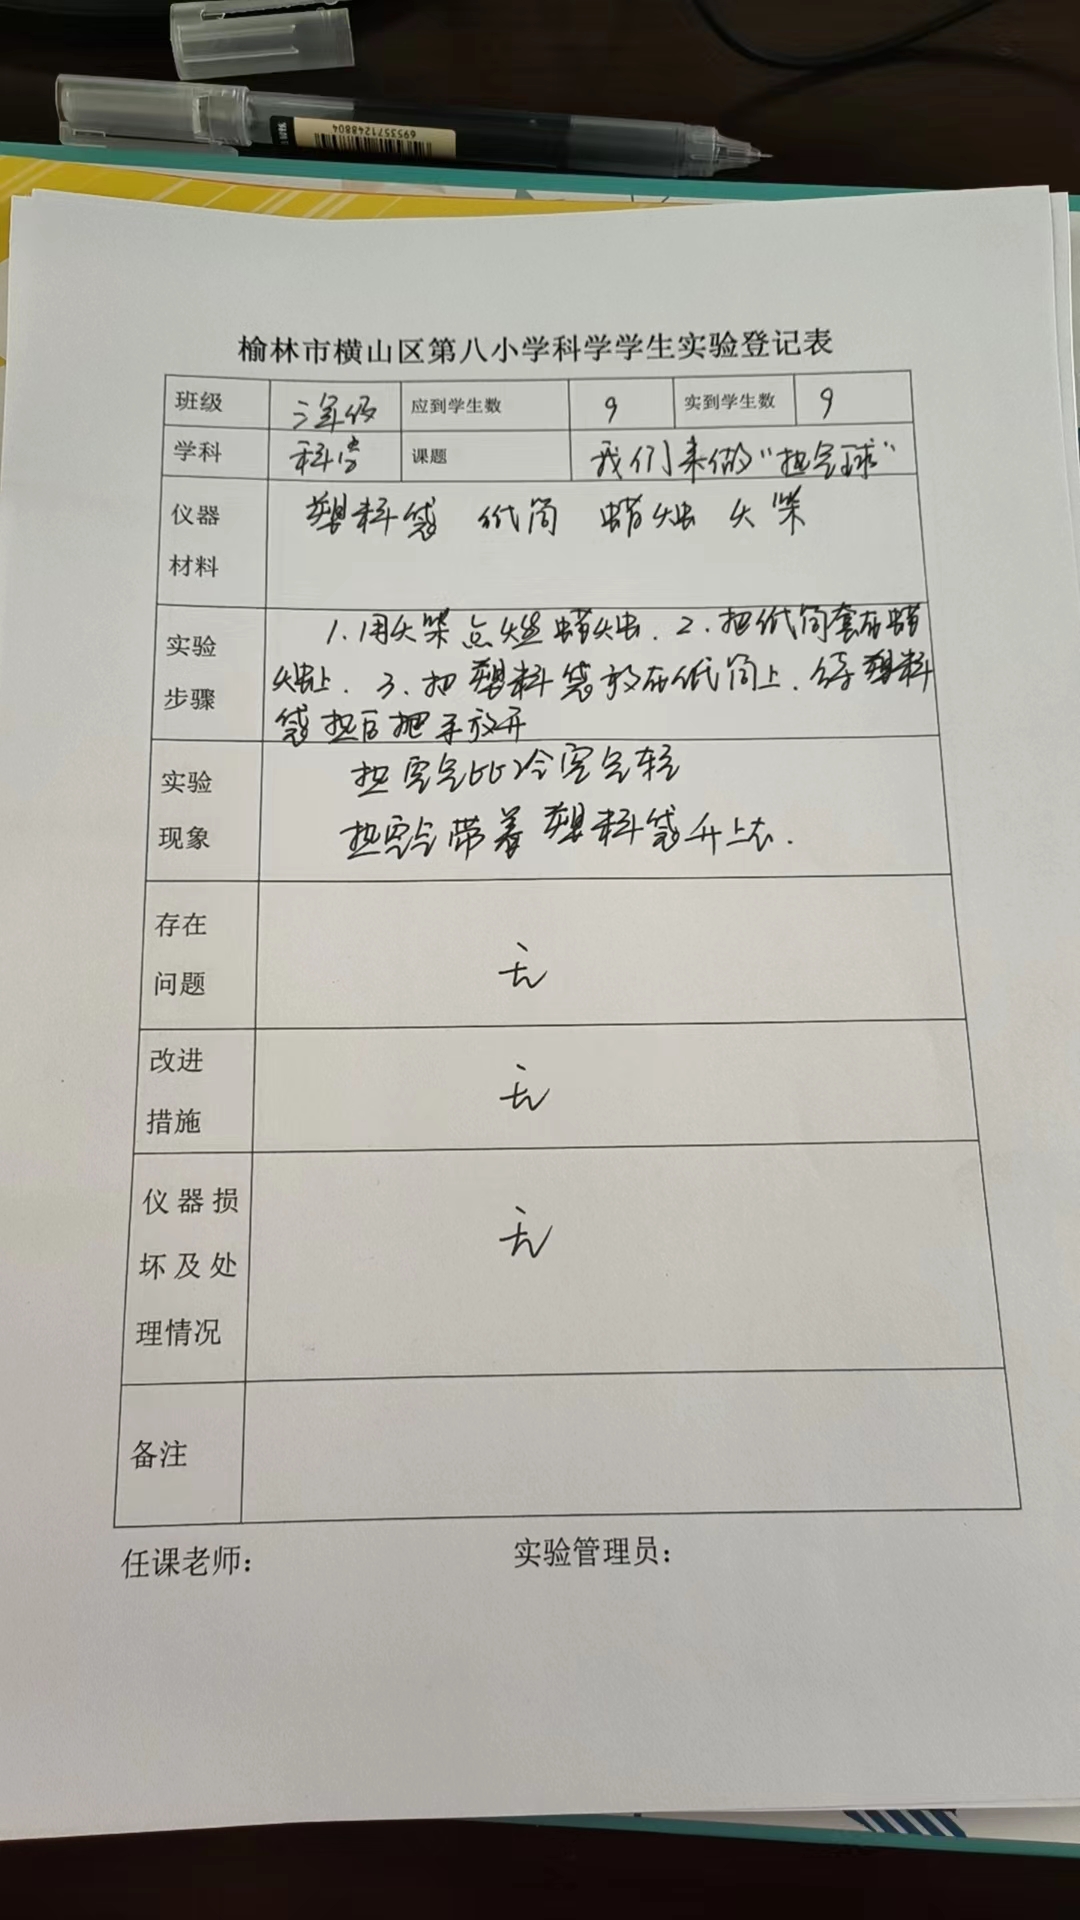 6953571248804
榆林市横山区第八小学科学学生实验登记表
班级 三年级 应到学生数 9 实到学生数 9
学科 科学 课题 我们来做“热气球”
仪器 塑料袋 纸筒 蜡烛 火柴
材料
实验 1.用火柴点燃蜡烛.2.把纸筒套在蜡
步骤 烛上.3.把塑料袋放在纸筒上.待塑料
袋热后把手放开
实验 热空气比冷空气轻
现象 热空气带着塑料袋升上去.
存在
问题 无
改进
措施 无
仪器损
坏及处 无
理情况
备注
任课老师: 实验管理员: